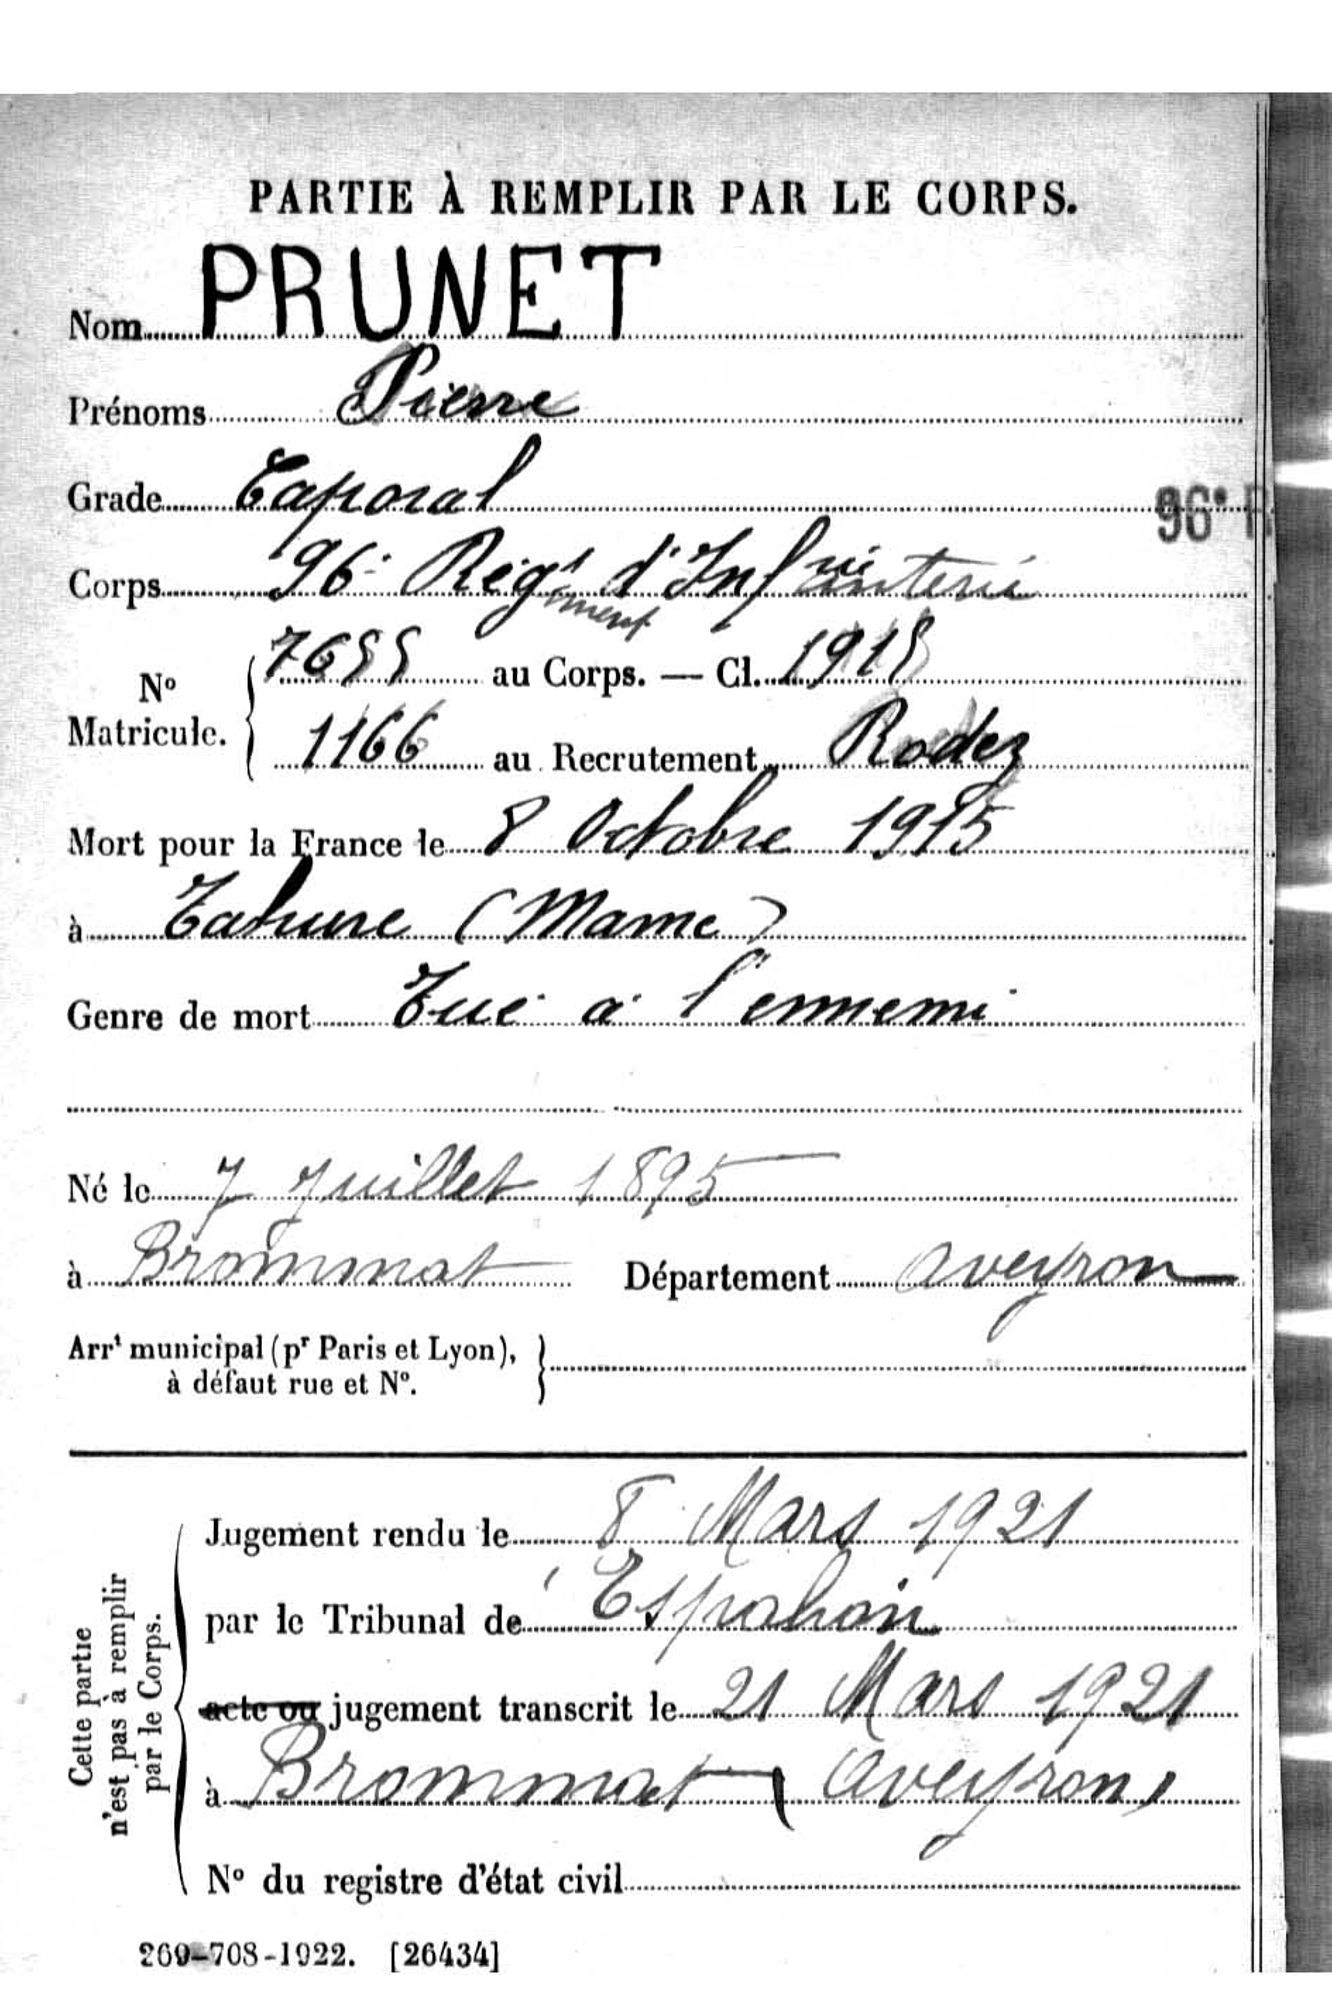 PARTIE À REMPLIR PAR LE CORPS.
Nom PRUNET
Prénoms Pierre
Grade Caporal
96e R
Corps 96e Régt d'Infrie anterie
ment
7655 au Corps. — Cl. 1915
No
Matricule.
1166 au Recrutement Rodez
Mort pour la France le 8 Octobre 1915
à Tahure (Marne)
Genre de mort Tué à l'ennemi
Né le 7 Juillet 1895
à Brommat Département Aveyron
Arrt municipal (pr Paris et Lyon),
à défaut rue et No.
Cette partie
n'est pas à remplir
par le Corps.
Jugement rendu le 8 Mars 1921
par le Tribunal de Espalion
acte ou jugement transcrit le 21 Mars 1921
à Brommat (Aveyron)
No du registre d'état civil
269-708-1922. [26434]